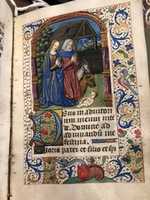 Deus in adiutori
um meum inten
de Domine ad
adiuuandum me
festina
Gloria patri et filio et